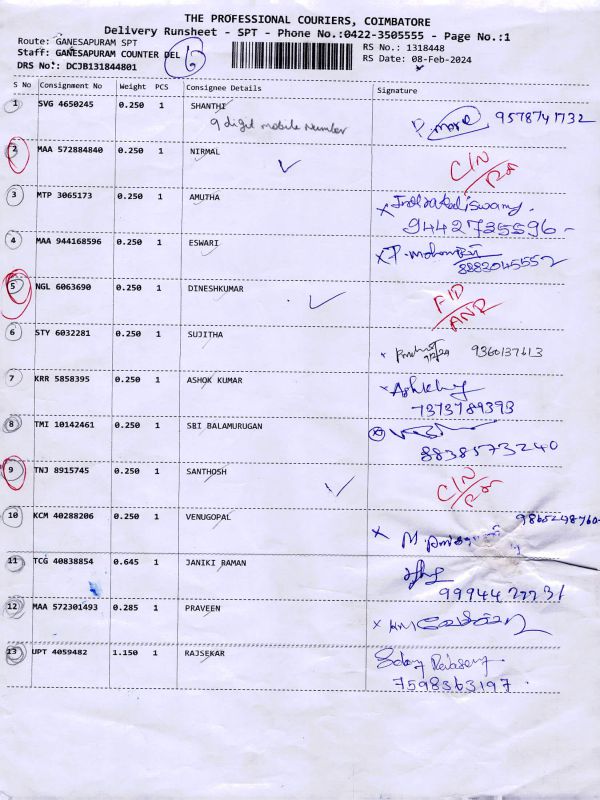 THE PROFESSIONAL COURIERS, COIMBATORE
Delivery Runsheet - SPT - Phone No.:0422-3505555 - Page No.:1
Route: GANESAPURAM SPT
RS No.: 1318448
Staff: GANESAPURAM COUNTER DEL
RS Date: 08-Feb-2024
DRS No.: DCJB131844801
S No Consignment No Weight PCS Consignee Details Signature
1 SVG 4650245 0.250 1 SHANTHI
9 digit mobile Number
9578741732
2 MAA 572884840 0.250 1 NIRMAL C/N
3 MTP 3065173 0.250 1 AMUTHA
9442735596
4 MAA 944168596 0.250 1 ESWARI
8883045552
5 NGL 6063690 0.250 1 DINESHKUMAR
6 STY 6032281 0.250 1 SUJITHA 9360137613
7 KRR 5858395 0.250 1 ASHOK KUMAR
7373789393
8 TMI 10142461 0.250 1 SBI BALAMURUGAN
8838573240
9 TNJ 8915745 0.250 1 SANTHOSH C/N
10 KCM 40288206 0.250 1 VENUGOPAL
11 TCG 40838854 0.645 1 JANIKI RAMAN
9994422231
12 MAA 572301493 0.285 1 PRAVEEN
13 UPT 4059482 1.150 1 RAJSEKAR
7598363197